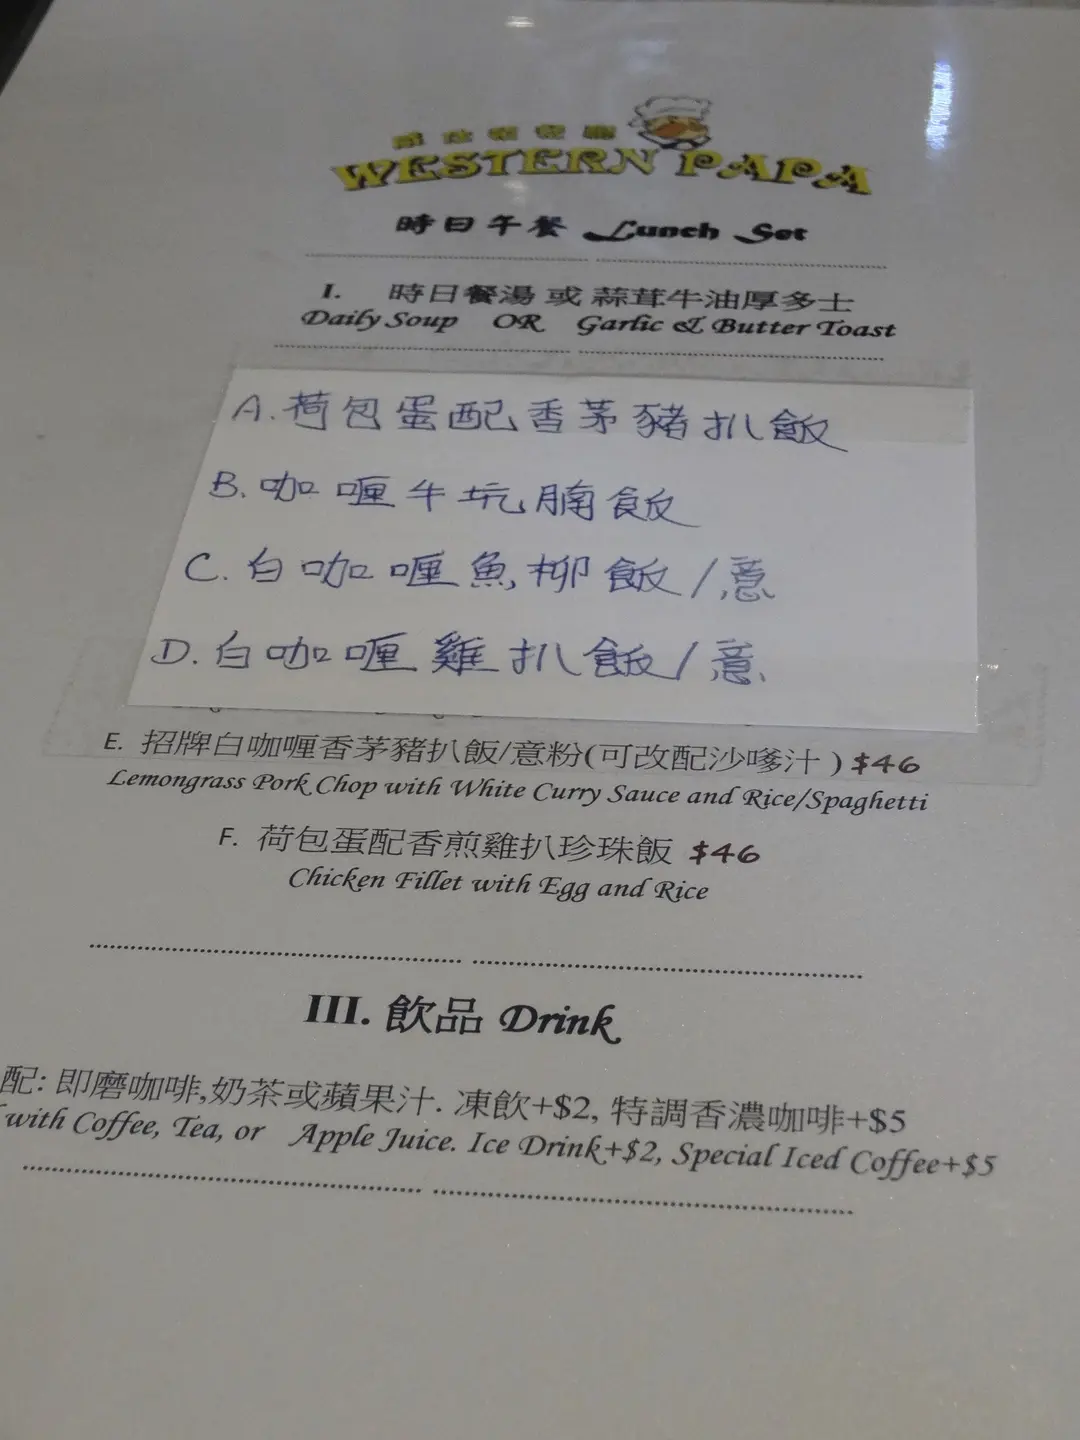 WESTERN PAPA
時日午餐 Lunch Set
I. 時日餐湯 或 蒜茸牛油厚多士
Daily Soup OR Garlic & Butter Toast
A. 荷包蛋配香茅豬扒飯
B. 咖喱牛坑腩飯
C. 白咖喱魚柳飯/意
D. 白咖喱雞扒飯/意
E. 招牌白咖喱香茅豬扒飯/意粉(可改配沙嗲汁) $46
Lemongrass Pork Chop with White Curry Sauce and Rice/Spaghetti
F. 荷包蛋配香煎雞扒珍珠飯 $46
Chicken Fillet with Egg and Rice
III. 飲品 Drink
配: 即磨咖啡,奶茶或蘋果汁. 凍飲+$2, 特調香濃咖啡+$5
with Coffee, Tea, or Apple Juice. Ice Drink+$2, Special Iced Coffee+$5